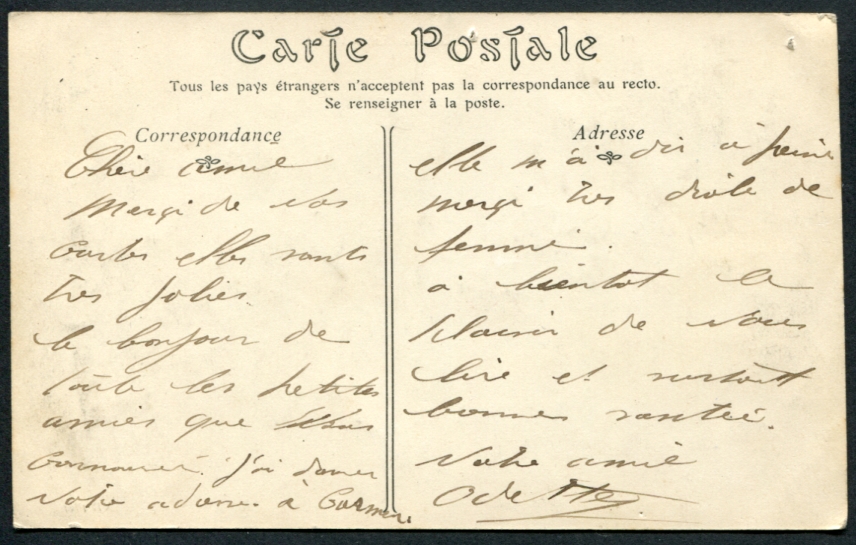 Carte Postale
Tous les pays étrangers n'acceptent pas la correspondance au recto.
Se renseigner à la poste.
Correspondance
Chère amie
Mergi de vos
cartes elles sonts
tres jolies.
le bonjour de
toute les petites
amies que vous
J'ai donner
votre à Carmen
Adresse
elle m'a dis à peine
mergi tres drôle de
femme.
à bientot le
plaisir de vous
lire et surtout
bonnes santée.
Votre amie
Odette